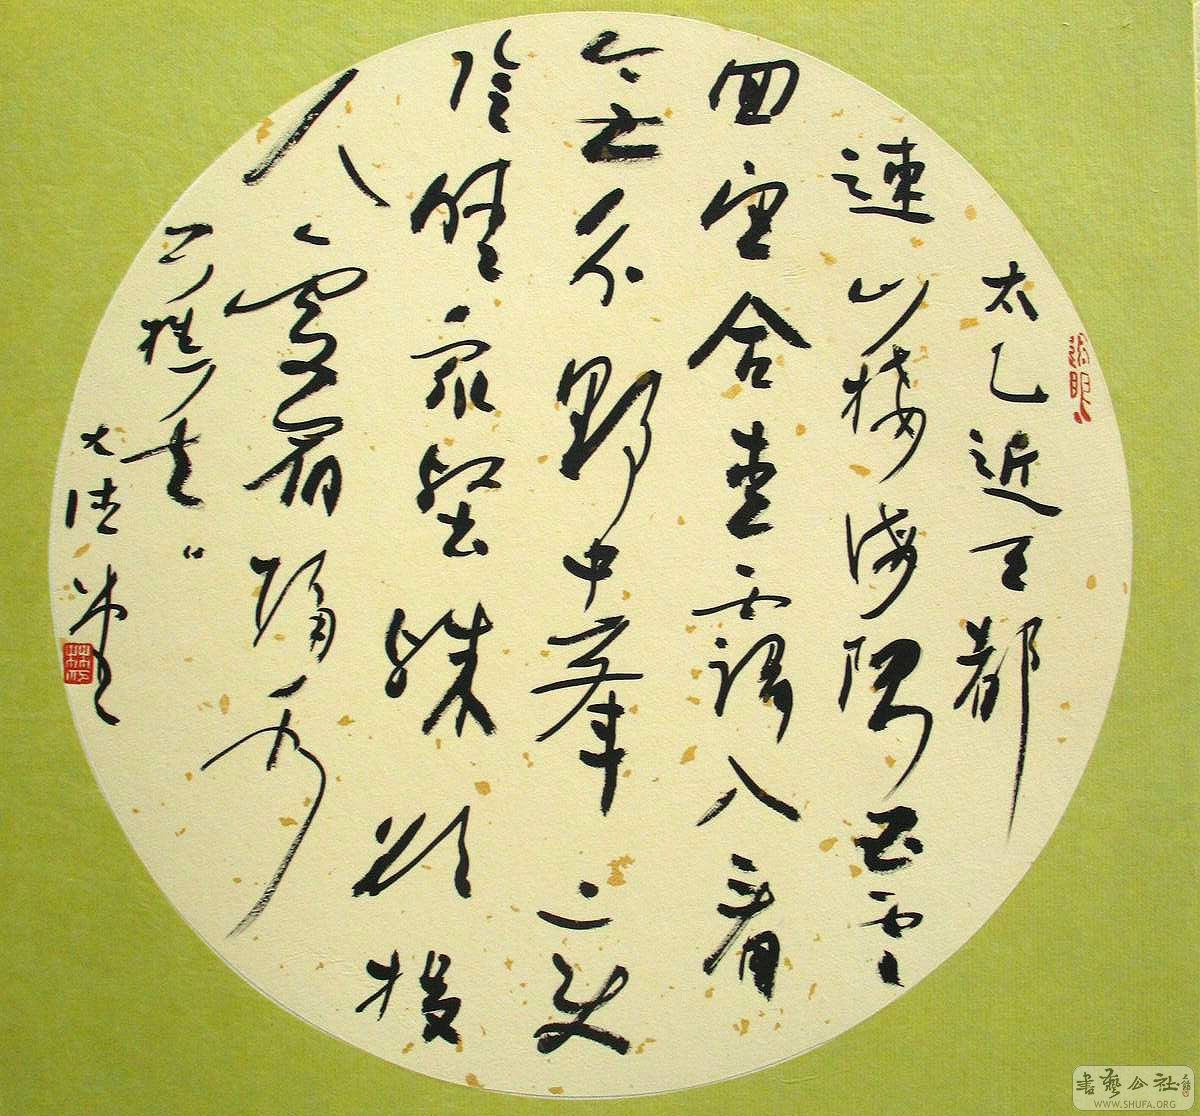 太乙近天都
連山接海隅白雲
回望合青靄入看
無分野中峯變
陰晴衆壑殊欲投
人處宿隔水
问樵夫
書藝公社
WWW.SHUFA.ORG